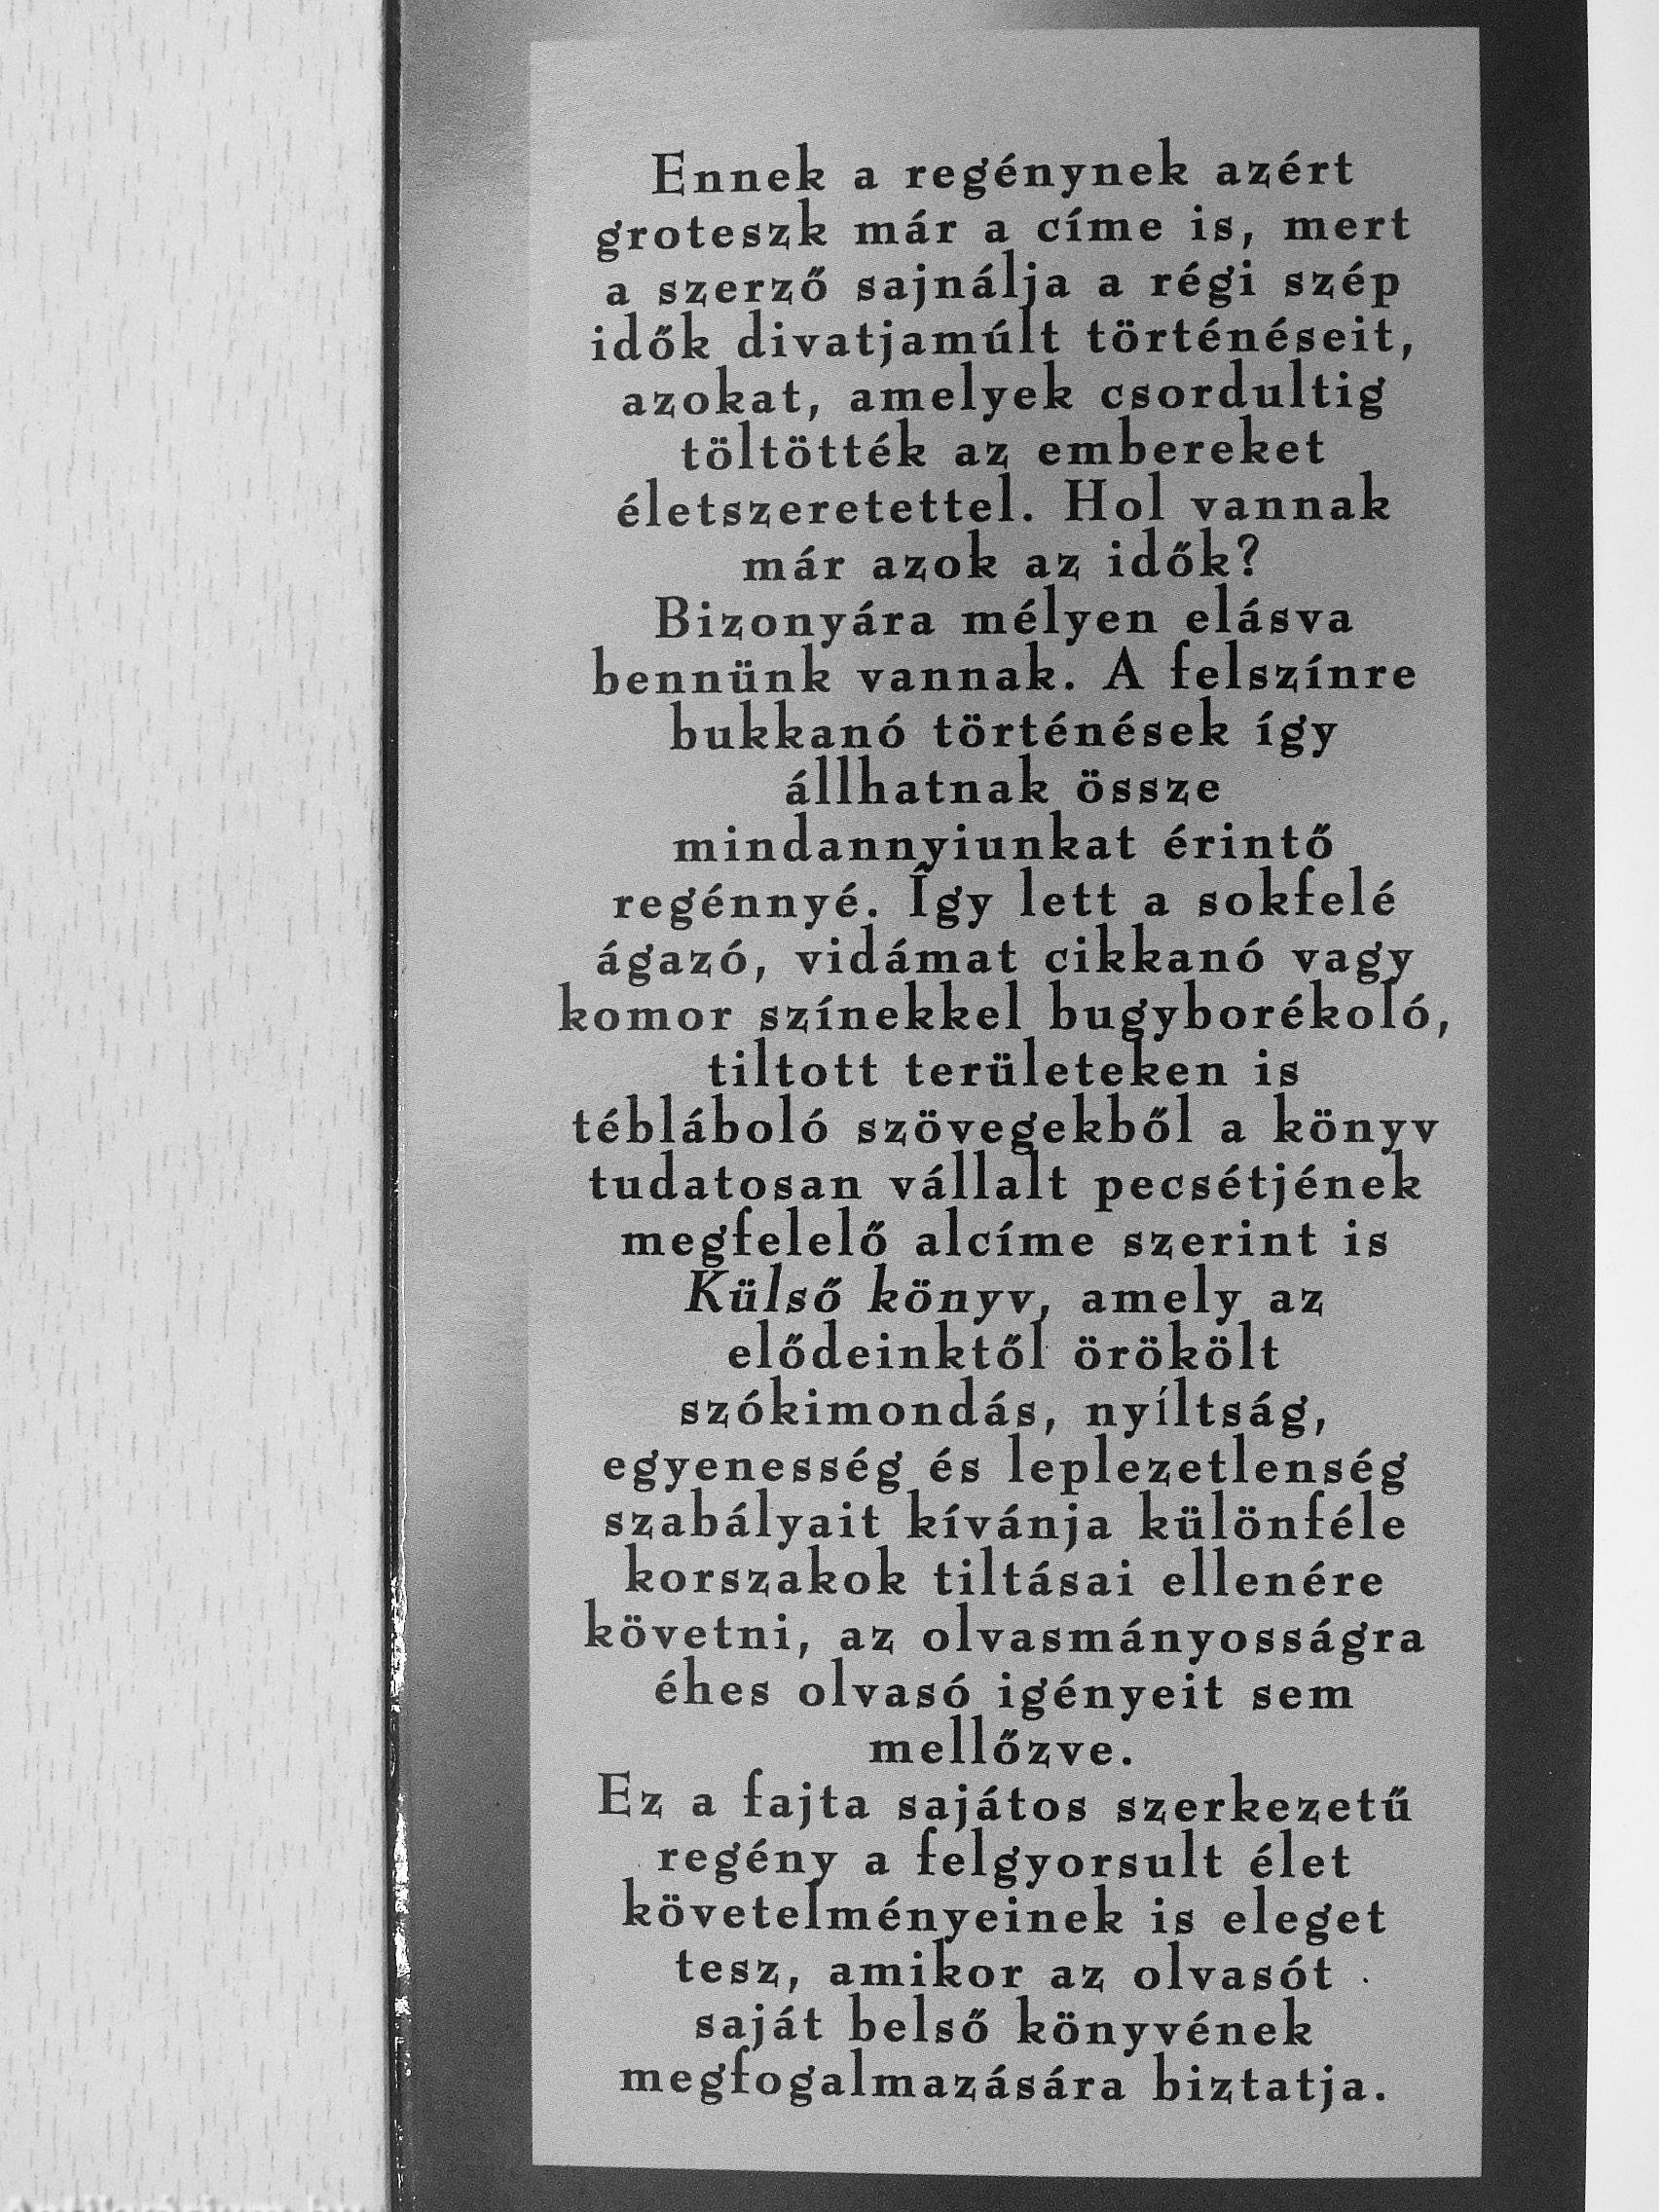 Ennek a regénynek azért
groteszk már a címe is, mert
a szerző sajnálja a régi szép
idők divatjamúlt történéseit,
azokat, amelyek csordultig
töltötték az embereket
életszeretettel. Hol vannak
már azok az idők?
Bizonyára mélyen elásva
bennünk vannak. A felszínre
bukkanó történések így
állhatnak össze
mindannyiunkat érintő
regénnyé. Így lett a sokfelé
ágazó, vidámat cikkanó vagy
komor színekkel bugyborékoló,
tiltott területeken is
tébláboló szövegekből a könyv
tudatosan vállalt pecsétjének
megfelelő alcíme szerint is
Külső könyv, amely az
elődeinktől örökölt
szókimondás, nyíltság,
egyenesség és leplezetlenség
szabályait kívánja különféle
korszakok tiltásai ellenére
követni, az olvasmányosságra
éhes olvasó igényeit sem
mellőzve.
Ez a fajta sajátos szerkezetű
regény a felgyorsult élet
követelményeinek is eleget
tesz, amikor az olvasót
saját belső könyvének
megfogalmazására biztatja.